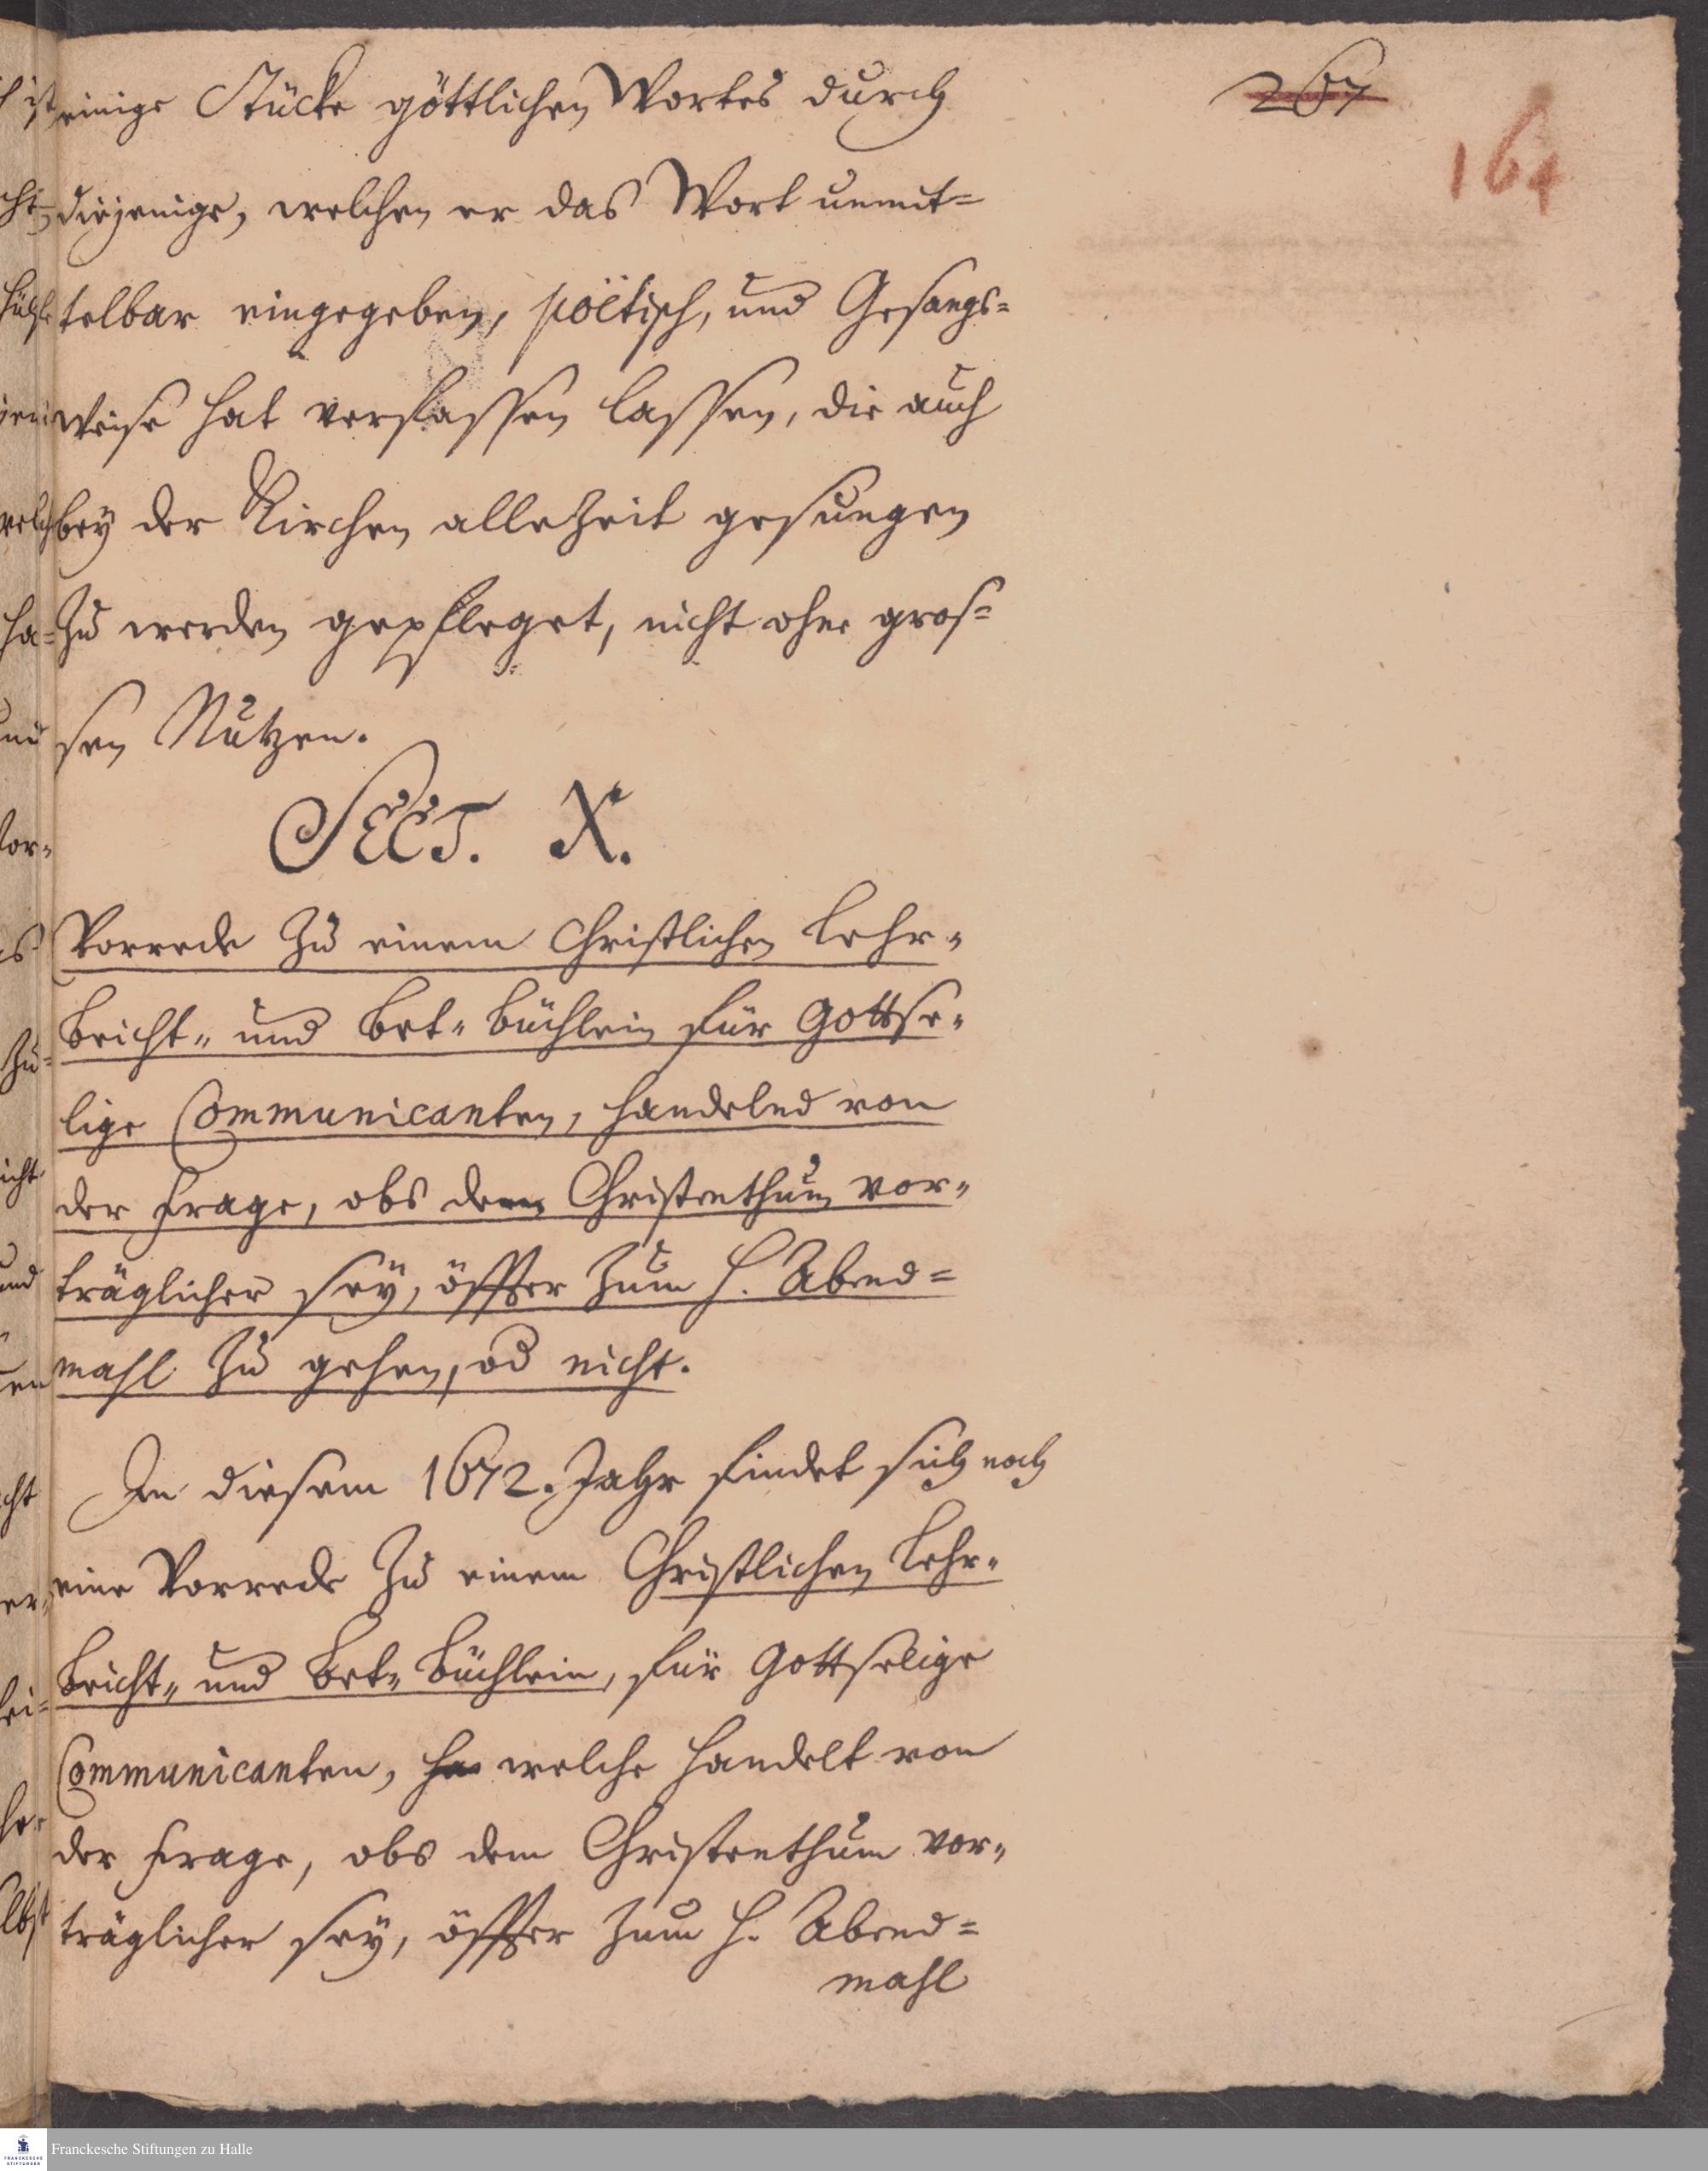 267
164
einige Stücke göttlichen Wortes durch
diejenige, welchen er das Wort unmit=
telbar eingegeben, poëtisch, und Gesangs=
weise hat verfassen lassen, die auch
bey der Kirchen allezeit gesungen
zu werden gepfleget, nicht ohne gros=
sen Nutzen.
SECT. X.
Vorrede zu einem Christlichen Lehr=
Beicht= und Bet=Büchlein für Gottse=
lige Communicanten, handelnd von
der Frage, obs dem Christenthum vor=
träglicher sey, öffter zum H. Abend=
mahl zu gehen, od nicht.
In diesem 1672. Jahr findet sich noch
eine Vorrede zu einem Christlichen Lehr=
Beicht= und Bet=Büchlein, für Gottselige
Communicanten, ha welche handelt von
der Frage, obs dem Christenthum vor=
träglicher sey, öffter zum H. Abend=
mahl
Franckesche Stiftungen zu Halle